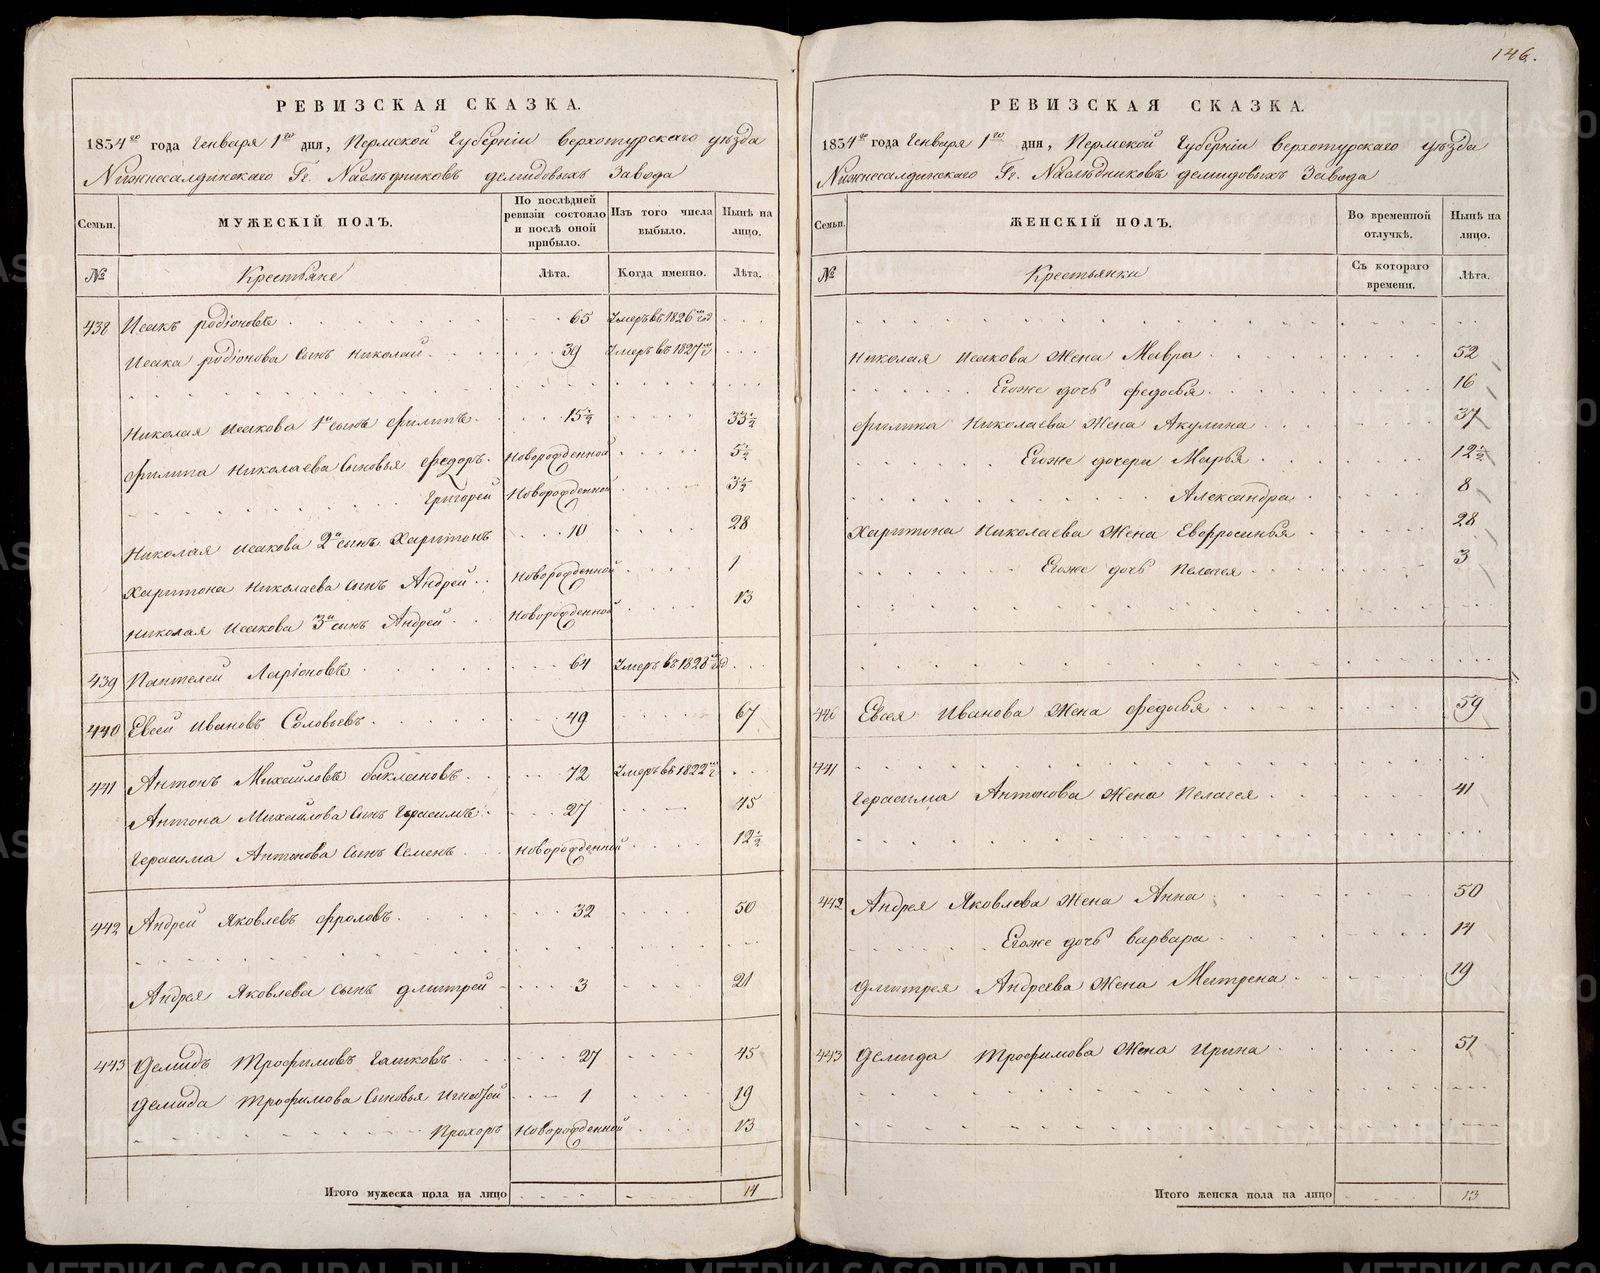 146.
РЕВИЗСКАЯ СКАЗКА.
1834го года Генваря 1го дня, Пермской Губерніи верхотурскаго уѣзда
Нижнесалдинскаго Гг. Наслѣдниковъ демидовыхъ Завода
Семьи. МУЖЕСКІЙ ПОЛЪ. По послѣдней ревизіи состояло и послѣ оной прибыло. Изъ того числа выбыло. Нынѣ на лицо.
№ Крестьяне Лѣта. Когда именно. Лѣта.
438 Исакъ родіоновъ 65 Умеръ въ 1826мъ год
Исака родіонова Сынъ Николай 39 Умеръ въ 1827мъ г
Николая Исакова 1й сынъ Филипъ 15½ 33½
Филипа Николаева Сыновья Федоръ Новорожденной 5½
Григорей Новорожденной 3½
Николая Исакова 2й сынъ Харитонъ 10 28
Харитона Николаева Сынъ Андрей Новорожденной 1
Николая Исакова 3й сынъ Андрей Новорожденной 13
439 Пантелей Ларіоновъ 64 Умеръ въ 1828мъ год
440 Евсей Ивановъ Соловьевъ 49 67
441 Антонъ Михайловъ баклановъ 72 Умеръ въ 1822мъ г
Антона Михайлова Сынъ Герасимъ 27 45
Герасима Антонова Сынъ Семенъ новорожденной 12½
442 Андрей Яковлевъ Фроловъ 32 50
Андрея Яковлева сынъ дмитрей 3 21
443 Демидъ Трофимовъ Гашковъ 27 45
Демида Трофимова Сыновья Игнатей 1 19
Прохоръ Новорожденной 13
Итого мужеска пола на лицо 14
РЕВИЗСКАЯ СКАЗКА.
1834го года Генваря 1го дня, Пермской Губерніи верхотурскаго уѣзда
Нижнесалдинскаго Гг. Наслѣдниковъ демидовыхъ Завода
Семьи. ЖЕНСКІЙ ПОЛЪ. Во временной отлучкѣ. Нынѣ на лицо.
№ Крестьянки Съ котораго времени. Лѣта.
Николая Исакова Жена Мавра 52
Егоже дочь федосья 16
Филипа Николаева Жена Акулина 37
Егоже дочери Марья 12½
Александра 8
Харитона Николаева Жена Евфросинья 28
Егоже дочь Пелагея 3
440 Евсея Иванова Жена федосья 59
441
Герасима Антонова Жена Пелагея 41
442 Андрея Яковлева Жена Анна 50
Егоже дочь варвара 14
Дмитрея Андреева Жена Матрена 19
443 Демида Трофимова Жена Ирина 51
Итого женска пола на лицо 13
METRIKI.GASO-URAL.RU